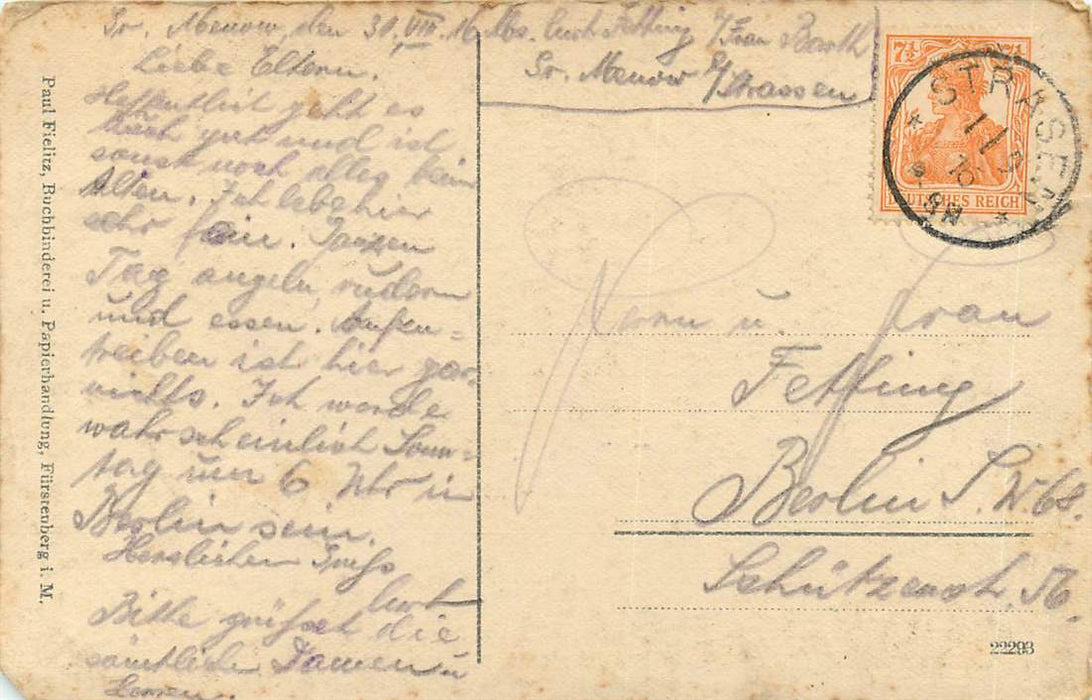 Gr. Menow, den 30. VIII. 16
Liebe Eltern.
Hoffentlich geht es
Euch gut und ist
sonst noch alles beim
Alten. Ich lebe hier
sehr fein. Ganzen
Tag angeln, rudern
und essen. Aufzu=
treiben ist hier gar
nichts. Ich werde
wahrscheinlich Sonn=
tag um 6 Uhr in
Berlin sein.
Herzlichen Gruß
Curt
Bitte grüßet die
sämtliche Damen u
Herren.
Abs. Curt Fetting b/ Frau Barth
Gr. Menow b/ Strassen
7½ 7½
DEUTSCHES REICH
STRASEN
Herrn u. Frau
Fetting
Berlin S.W. 68.
Schützenstr. 56.
22293
Paul Fielitz, Buchbinderei u. Papierhandlung, Fürstenberg i. M.